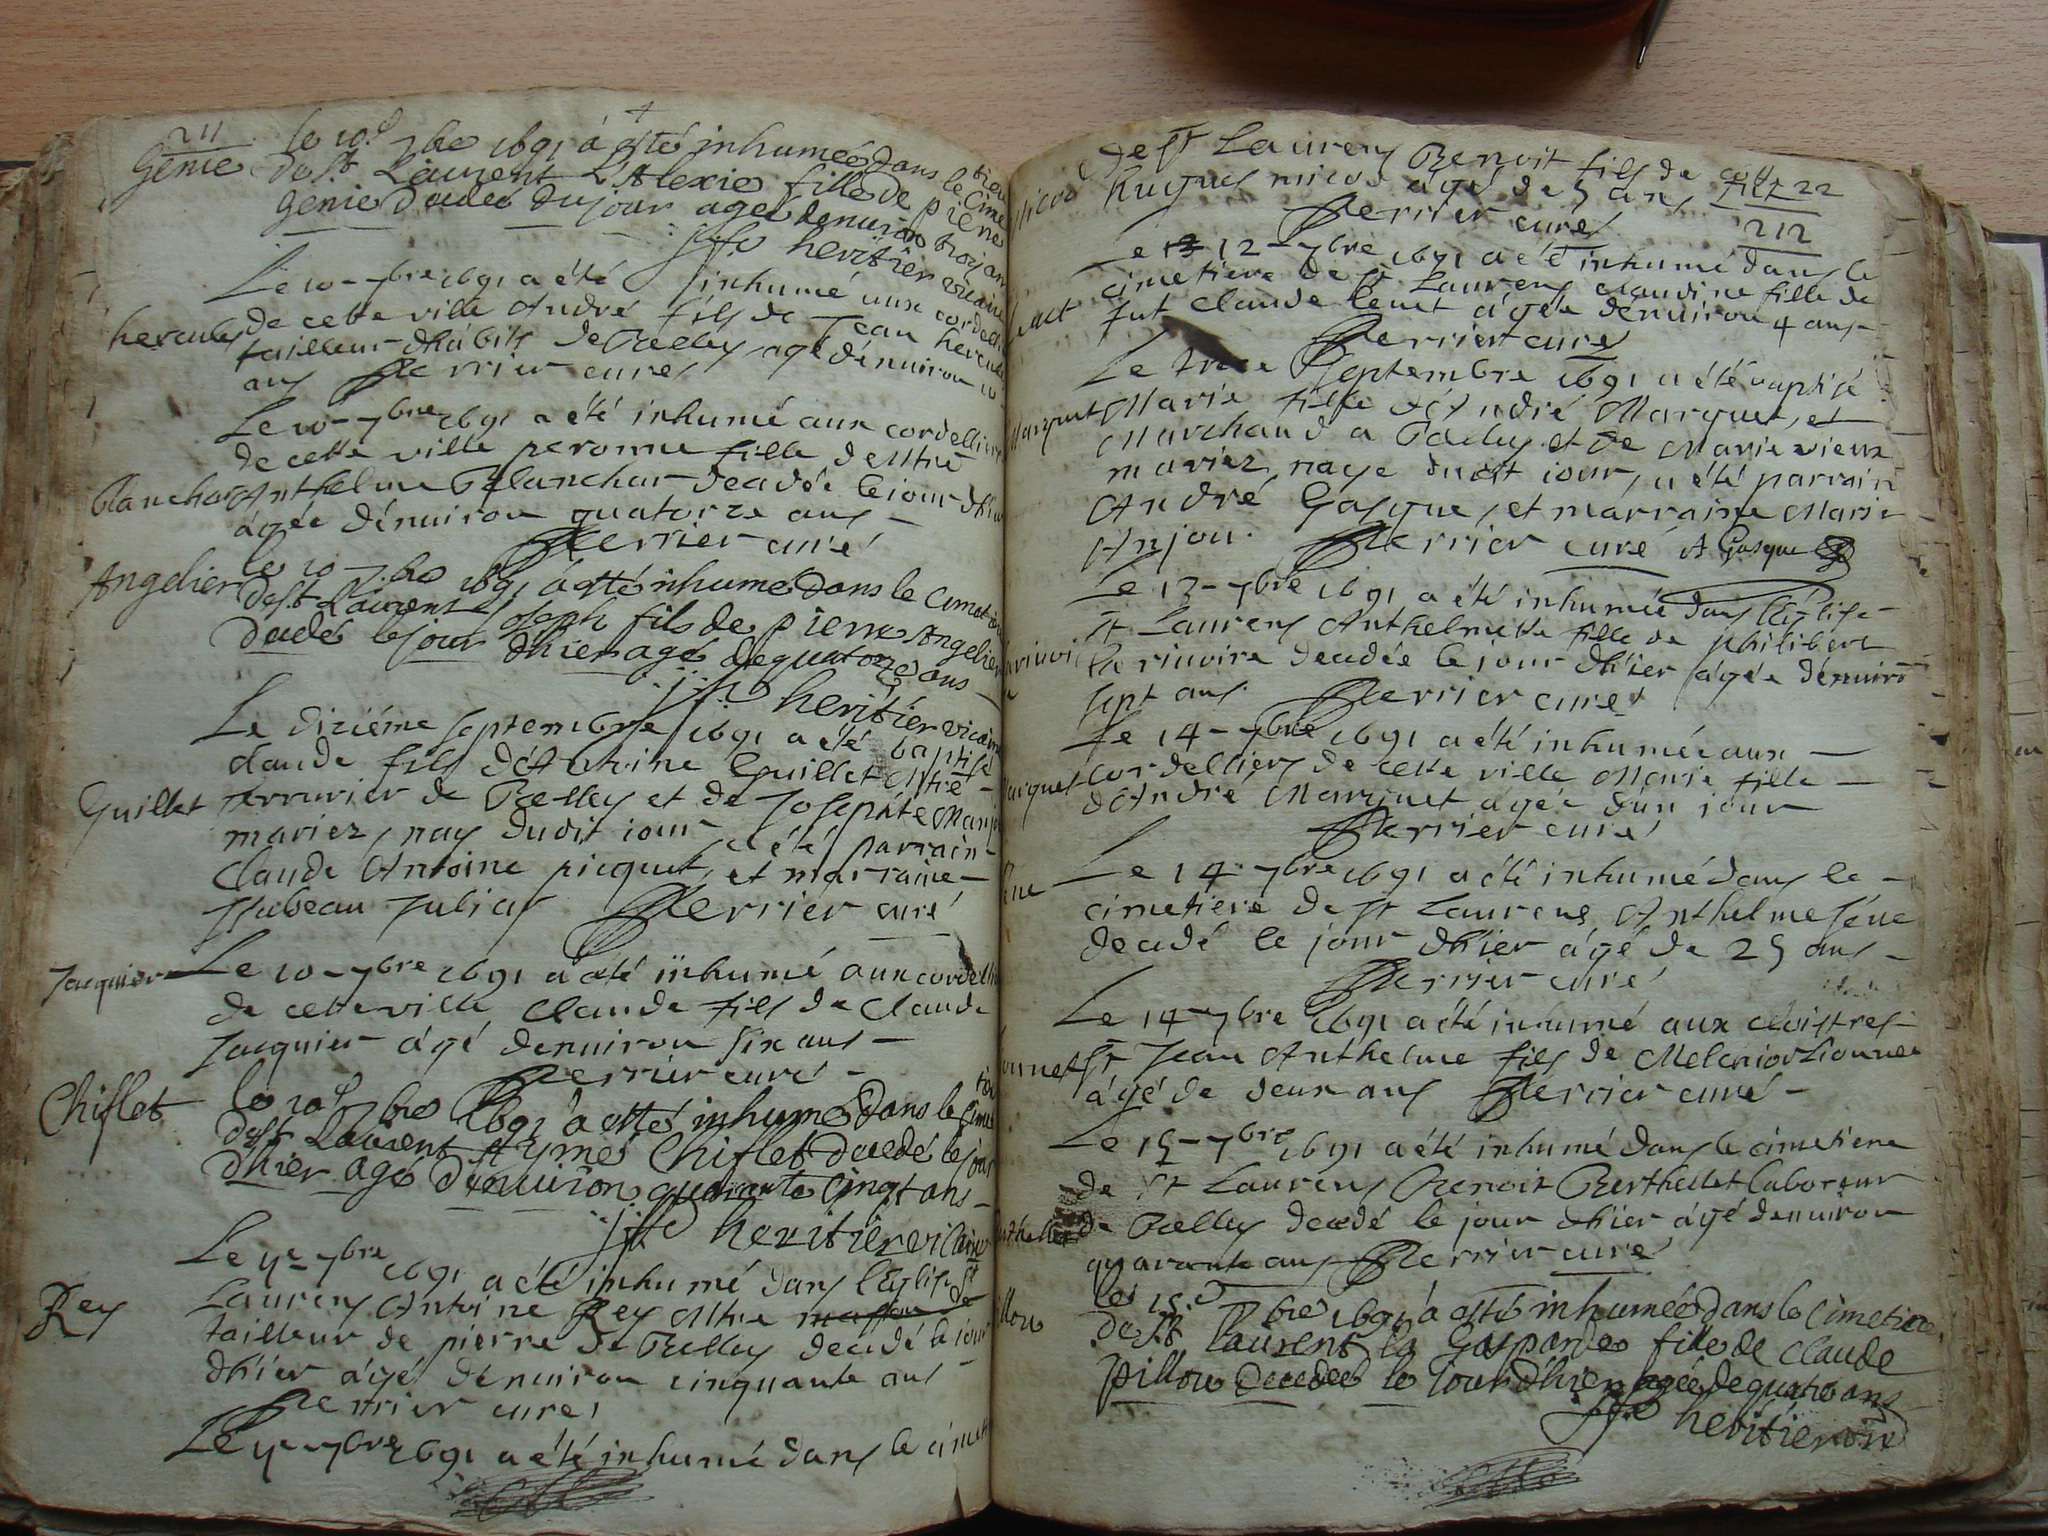 211
le 10e 7bre 1691 á esté inhumée dans le Cime
tiere
Genie
de St Laurent L'Alexie fille de pierre
Genie decedee du jour ageé denuiron trois ans
heritier vicaire
Le 10 7bre 1691 a été inhumé aux cordell
hercules
de cette ville André fils de Jean hercule
tailleur d'habits de Belley agé dénuiron
ans Perrier curé
Le 10 7bre 1691 a été inhumé aux cordelliers
de cette ville peronne fille de Mtre
Blanchar
Anthelme Blanchar decedée le jour d'hier
ágée dénuiron quatorze ans
Perrier curé
le 10 7bre 1691 á esté inhumé dans le Cimetie
Angelier
de St Laurent Joseph fils de pierre Angelier
decedé le jour d'hier agé de quatorze ans
heritier vicaire
Le diziéme septembre 1691 a été baptisé
claude fils d'Anthoine Guillet Mtre
Guillet
serrurier de Belley et de Josephte
mariez, nay dudit iour a été parrain
Claude Antoine picquet, et marraine
Isabeau Julias Perrier curé
Jacquier
Le 10 7bre 1691 a été inhumé aux cordelli
de cette ville Claude fils de Claude
Jacquier ágé denuiron six ans
Perrier curé
Chiflet
le 10e 7bre 1691 a esté inhumé dans le Cime
tie
de St Laurent Aymé Chiflet decedé le jour
d'hier agé denuiron quarante cinqt ans
heritier vicaire
Le 7bre 1691 a été inhumé dans l'Eglise St
Rey
Laurens Antoine Rey Mtre masson de
tailleur de pierre de Belley decedé le iour
d'hier ágé dénuiron cinquante ans
Perrier curé
Le 7bre 1691 a été inhumé dans le cimet
de St Laurens Benoit fils de
hugues micod agé de 5 ans
22
Perrier curé
212
Le 12 7bre 1691 a été inhumé dans le
cimetiere de St Laurens claudine fille de
fut Claude ágée dénuiron 4 ans
Perrier curé
Le treze septembre 1691 a été baptisé
Marquet
Marie fille d'André Marquet, et
Marchand a Belley et de Marie vieux
mariez, naye dudit iour, a été parrain
André Gasque, et marraine Marie
Anjou. Perrier curé A Gasque
Le 13 7bre 1691 a été inhumée dans l'Eglise
St Laurens Anthelmette fille de philibert
decedée le jour d'hier ágée dénuiro
sept ans Perrier curé
Le 14 7bre 1691 a été inhumée aux
Marquet
cordelliers de cette ville Marie fille
d'André Marquet agée d'un iour
Perrier curé
Le 14 7bre 1691 a été inhumé dans le
Séne
cimetiere de St Laurens Anthelme Séne
decedé le jour d'hier ágé de 25 ans
Perrier curé
Le 14 7bre 1691 a été inhumé aux cloistres
St Jean Anthelme fils de Melchior Lionnet
ágé de deux ans Perrier curé
Le 15 7bre 1691 a été inhumé dans le cimetiere
de St Laurens Benoit Berthellet laboreur
de Belley decedé le jour d'hier ágé denuiron
quarante ans Perrier curé
le 15e 7bre 1691 á esté inhumée dans le Cimetiere
pillou
de St laurent la Gasparde fille de claude
pillou decedeé le jour d'hier ageé de quatre ans
heritier